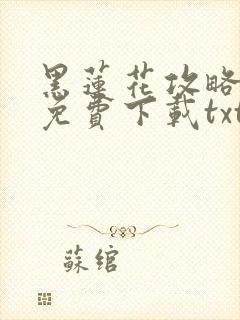 黑蓮花攻略
免費下載txt
蘇綰